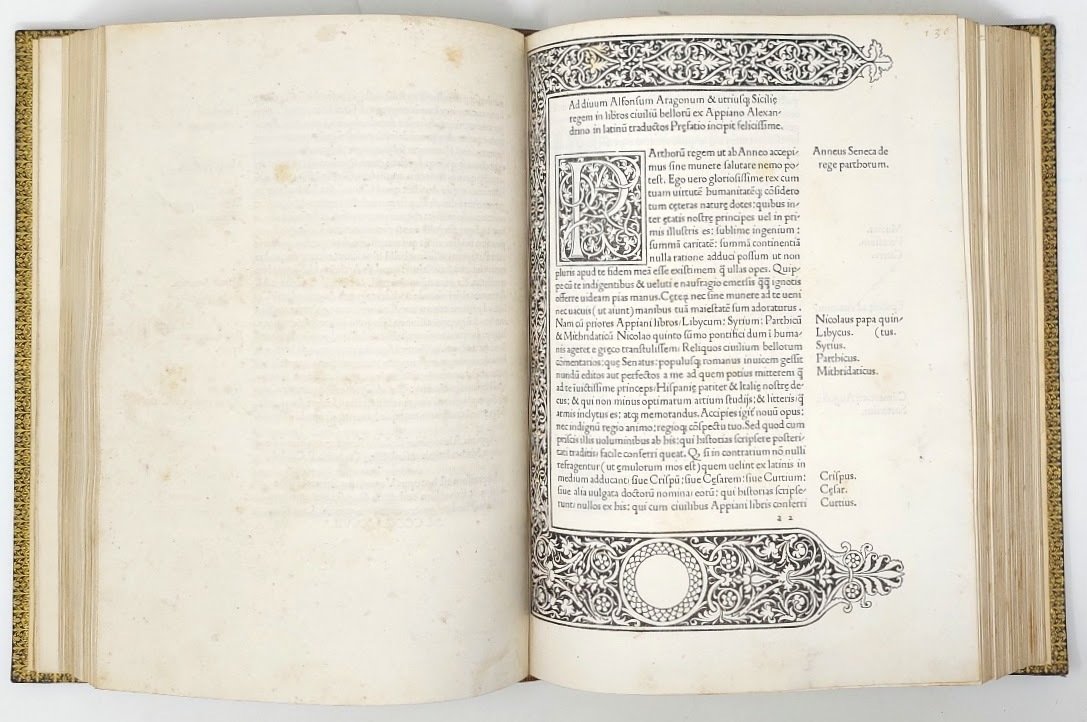 130
Ad diuum Alfonsum Aragonum & utriusq; Sicilię
regem in libros ciuiliũ bellorũ ex Appiano Alexan-
drino in latinũ traductos Pręfatio incipit felicissime.
PArthorũ regem ut ab Anneo accepi-
mus sine munere salutare nemo po-
test. Ego uero gloriosissime rex cum
tuam uirtutẽ humanitatẽq; cõsidero
tum cęteras naturę dotes: quibus in-
ter ętatis nostrę principes uel in pri-
mis illustris es: sublime ingenium:
summã caritatẽ: summã continentiã
nulla ratione adduci possum ut non
pluris apud te fidem meã esse existimem q̃ ullas opes. Quip-
pe cũ te indigentibus & ueluti e naufragio emersis q̃q̃ ignotis
offerre uideam pias manus. Cęteɽ nec sine munere ad te ueni
nec uacuis (ut aiunt) manibus tuã maiestatẽ sum adoraturus.
Nam cũ priores Appiani libros/Libycum: Syrium: Parthicũ
& Mithridaticũ Nicolao quinto sũmo pontifici dum ĩ huma-
nis ageret e gręco transtulissem: Reliquos ciuilium bellorum
cõmentarios: quę Senatus: populusq; romanus inuicem gessit
nundũ editos aut perfectos a me ad quem potius mitterem q̃
ad te ĩuictissime princeps/Hispanię pariter & Italię nostrę de-
cus; & qui non minus optimarum artium studijs; & litteris q̃
armis inclytus es: atq; memorandus. Accipies igit̃ nouũ opus:
nec indignũ regio animo: regioq; cõspectu tuo. Sed quod cum
priscis illis uoluminibus ab his: qui historias scripsere posteri-
tati traditis: facile conferri queat. Q, si in contrarium nõ nulli
refragentur (ut ęmulorum mos est) quem uelint ex latinis in
medium adducant: siue Crispũ: siue Cęsarem: siue Curtium:
siue alia uulgata doctorũ nomina: eorũ: qui historias scripse-
runt: nullos ex his: qui cum ciuilibus Appiani libris conferri
a 2
Anneus Seneca de
rege parthorum.
Nicolaus papa quin-
Libycus. (tus.
Syrius.
Parthicus.
Mithridaticus.
Crispus.
Cęsar.
Curtius.